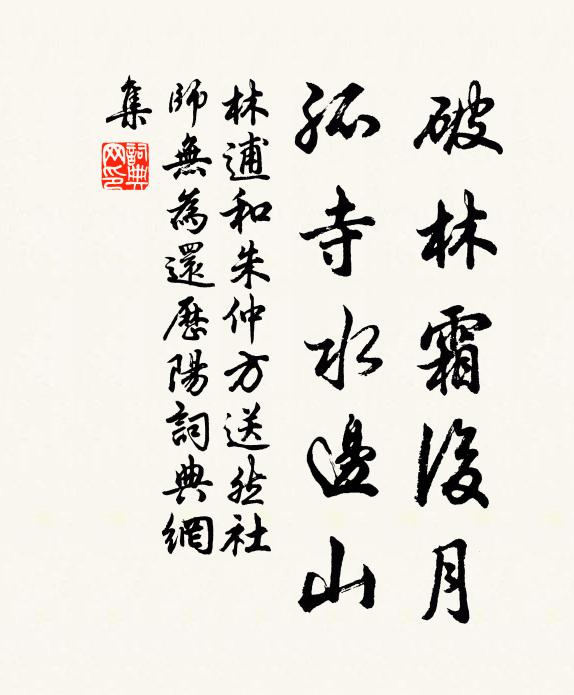 破林霜後月
孤寺水邊山
林逋和朱仲方送然社
師無為還歷陽詞典網
集
詞典
网印